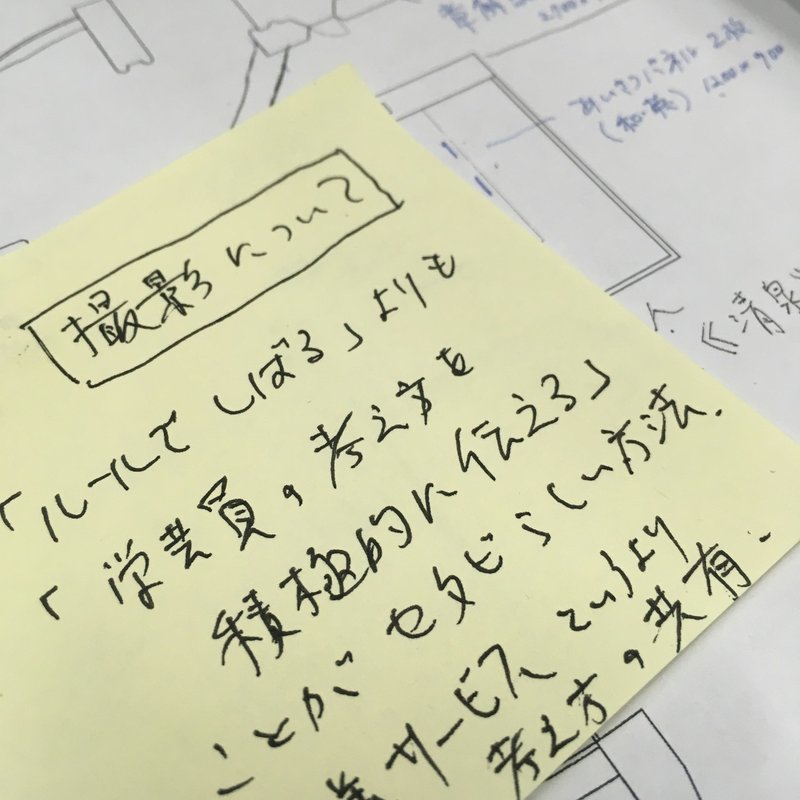 撮影について
「ルールでしばる」よりも
「学芸員の考え方を
積極的に伝える」
ことがセタビらしい方法.
サービスというより
考え方の共有.
あいさつパネル 2枚
(和英) 1200×900
《清泉